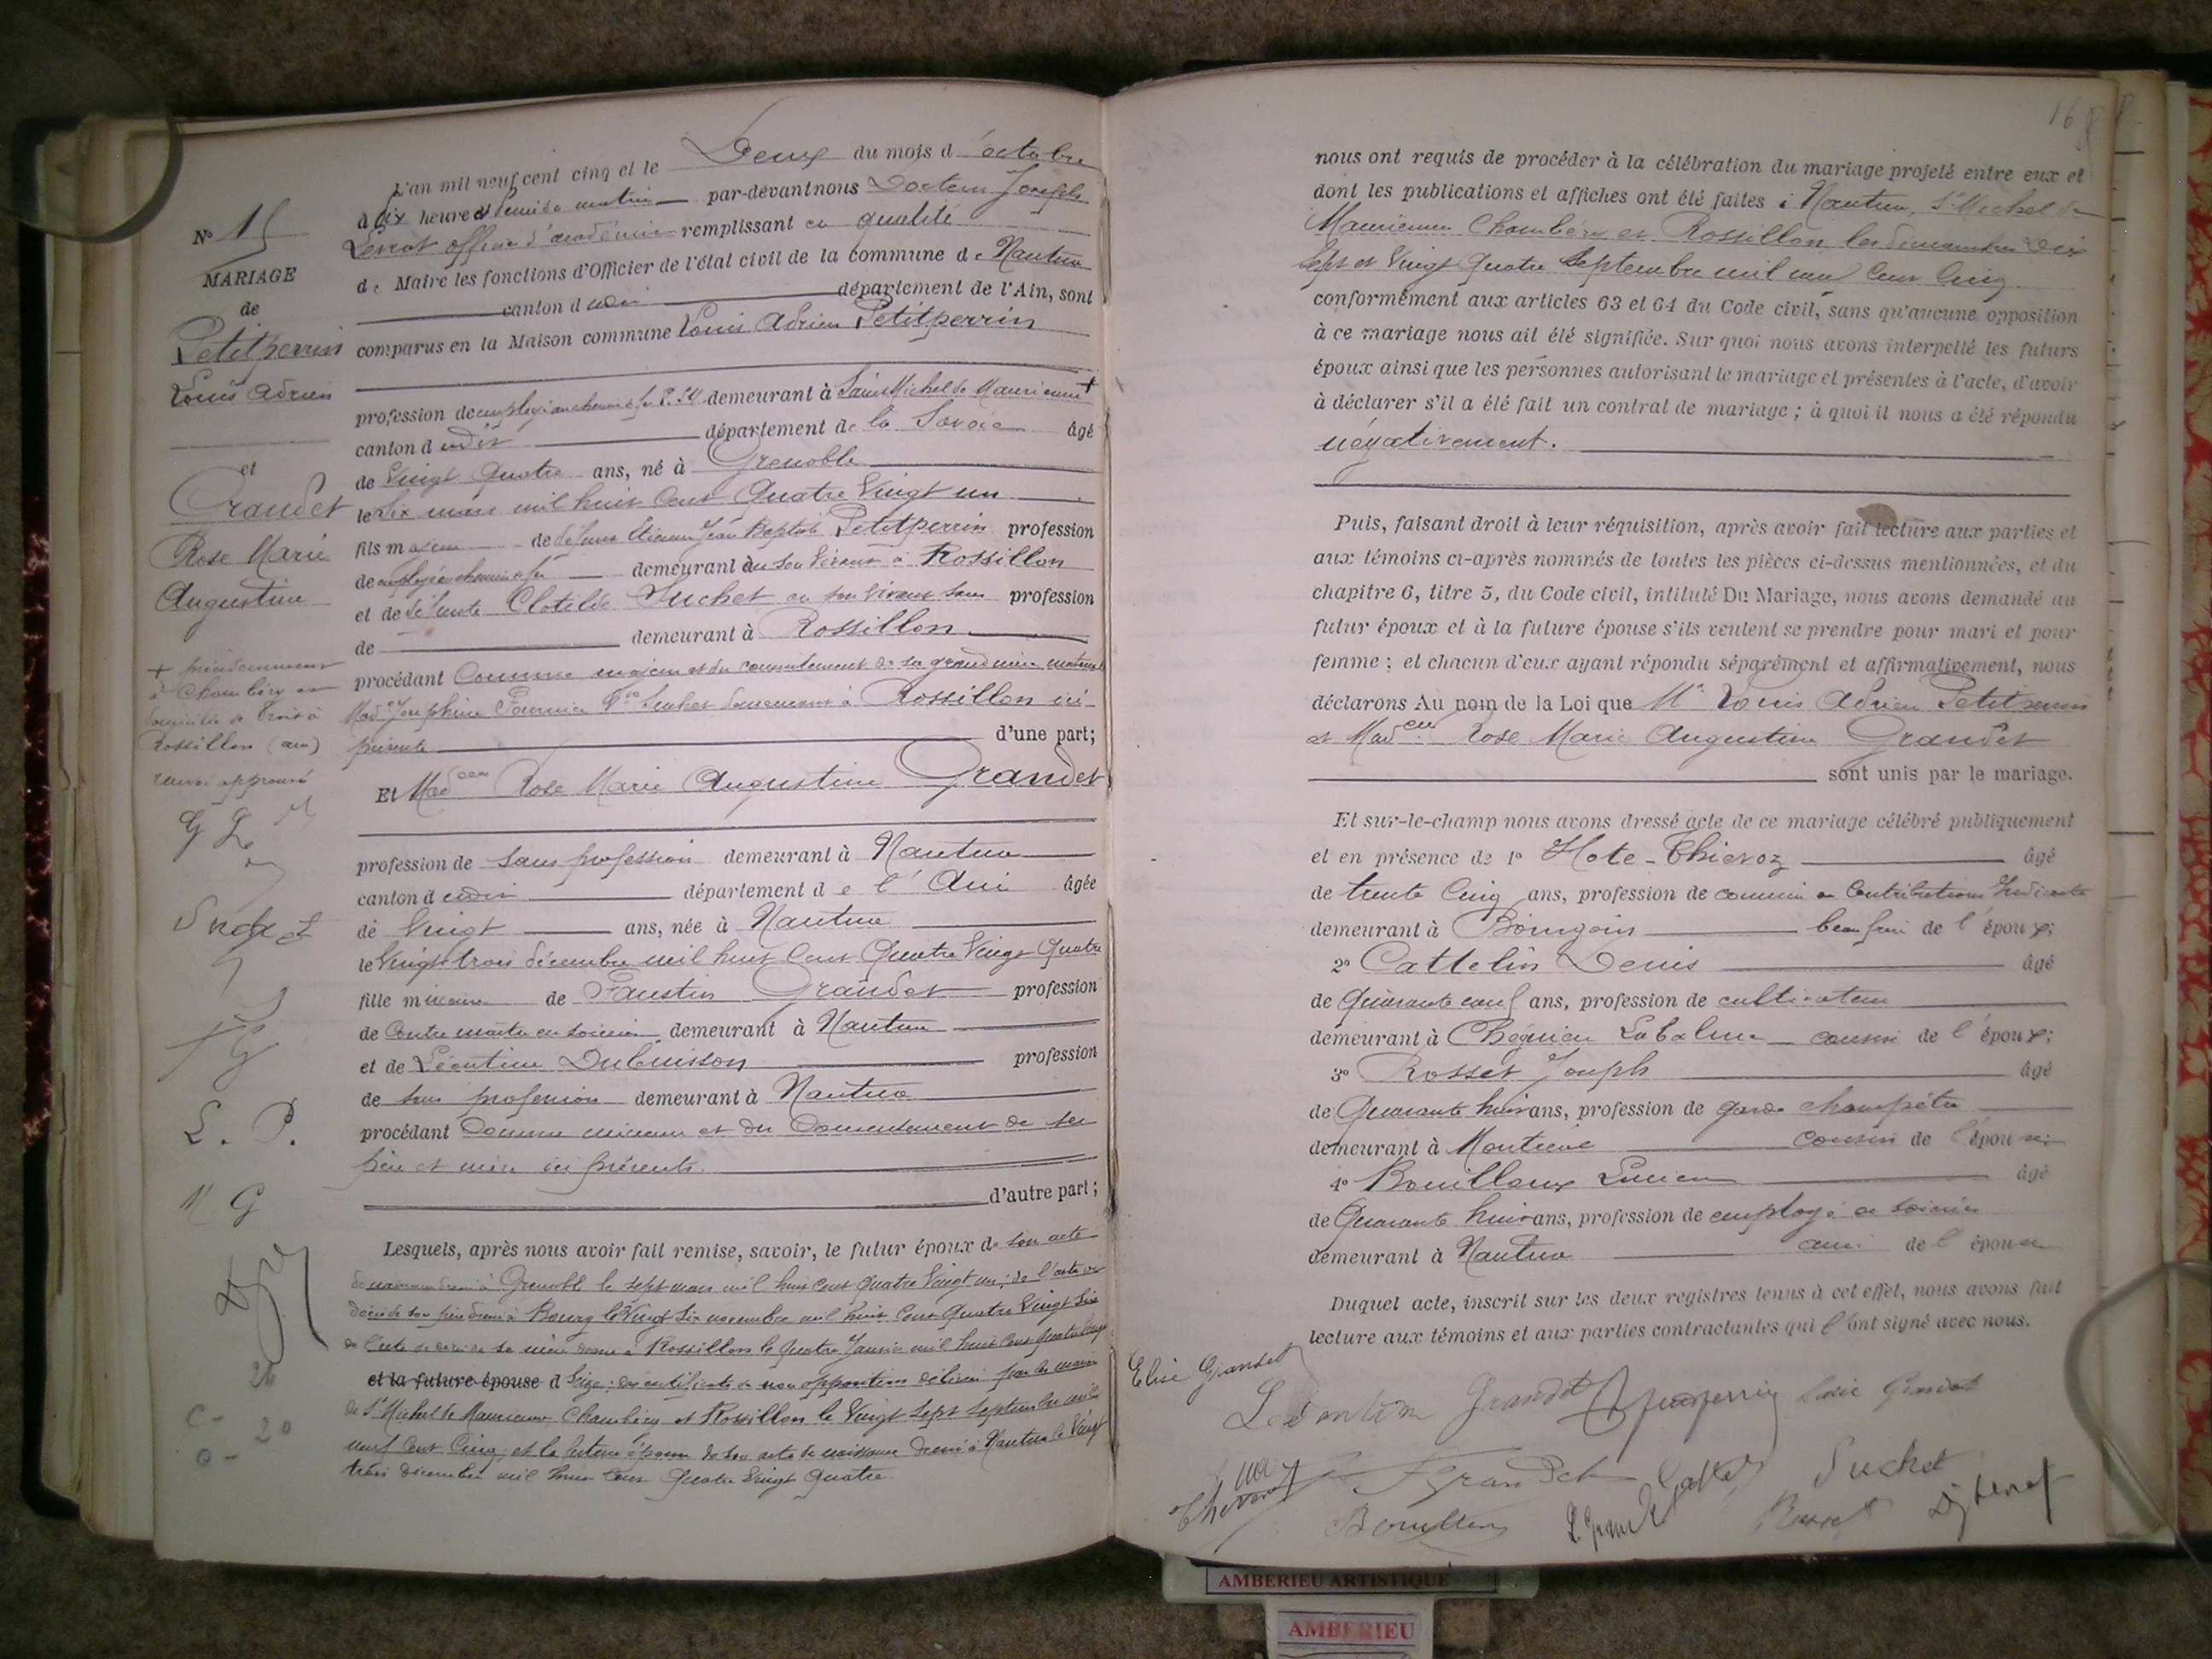 L'an mil neuf cent cinq et le Deux du mois d'octobre
à dix heures & demie du matin par-devant nous Docteur Joseph
officier d'académie remplissant en qualité
de Maire les fonctions d'Officier de l'état civil de la commune de Nantua
canton d udit département de l'Ain, sont
comparus en la Maison commune Louis Adrien Petitperrin
profession de employé au chemin de fer demeurant à Saint Michel de Maurienne +
canton d udit département de la Savoie âgé
de Vingt Quatre ans, né à Grenoble
le six mars mil huit Cent Quatre Vingt un
fils majeur de défunt Etienne Jean Baptiste Petitperrin profession
de employé chemin de fer demeurant de son vivant à Rossillon
et de défunte Clotilde Suchet en son vivant sans profession
de demeurant à Rossillon
procédant Comme majeur et du consentement de sa grand mère maternelle
Made Josephine Fournier Suchet demeurant à Rossillon ici
présente d'une part;
Et Mad elle Rose Marie Augustine Grandet
profession de sans profession demeurant à Nantua
canton d udit département d e l'Ain âgée
de Vingt ans, née à Nantua
le Vingt trois décembre mil huit Cent Quatre Vingt Quatre
fille mineure de Faustin Grandet profession
de Contre maître en soierie demeurant à Nantua
et de Léontine Dubuisson profession
de sans profession demeurant à Nantua
procédant Comme mineure et du Consentement de ses
père et mère ici présents.
d'autre part;
Lesquels, après nous avoir fait remise, savoir, le futur époux de son acte
de naissance dressé à Grenoble le sept mars mil huit cent quatre Vingt un; de l'acte de
décès de son père dressé à Bourg le Vingt Six novembre mil huit Cent Quatre Vingt Six
de l'acte de décès de sa mère dressé à Rossillon le Quatre Janvier mil huit Cent Quatre Vingt
et la future épouse d Seize; des certificats de non opposition délivrés par les maires
de St Michel de Maurienne Chambéry et Rossillon le Vingt Sept Septembre mil
neuf Cent Cinq; et la future épouse de son acte de naissance dressé à Nantua le Vingt
trois décembre mil huit Cent Quatre Vingt Quatre.
N° 15
MARIAGE
de
Petitperrin
Louis Adrien
et
Grandet
Rose Marie
Augustine
+ précédemment
à Chambéry et
domicilié de droit à
Rossillon (ain)
renvoi approuvé
Suchet
L. P.
M G
16
nous ont requis de procéder à la célébration du mariage projeté entre eux et
dont les publications et affiches ont été faites à Nantua, St Michel de
Maurienne Chambéry et Rossillon les dimanches Dix
Sept et Vingt Quatre Septembre mil neuf Cent Cinq
conformément aux articles 63 et 64 du Code civil, sans qu'aucune opposition
à ce mariage nous ait été signifiée. Sur quoi nous avons interpellé les futurs
époux ainsi que les personnes autorisant le mariage et présentes à l'acte, d'avoir
à déclarer s'il a été fait un contrat de mariage; à quoi il nous a été répondu
négativement.
Puis, faisant droit à leur réquisition, après avoir fait lecture aux parties et
aux témoins ci-après nommés de toutes les pièces ci-dessus mentionnées, et du
chapitre 6, titre 5, du Code civil, intitulé Du Mariage, nous avons demandé au
futur époux et à la future épouse s'ils veulent se prendre pour mari et pour
femme; et chacun d'eux ayant répondu séparément et affirmativement, nous
déclarons Au nom de la Loi que Mr Louis Adrien Petitperrin
et Mad elle Rose Marie Augustine Grandet
sont unis par le mariage.
Et sur-le-champ nous avons dressé acte de ce mariage célébré publiquement
et en présence de 1° Hote-Thievoz âgé
de trente Cinq ans, profession de commis en Contributions Indirectes
demeurant à Bourgoin beau frère de l'époux;
2° Cattelin Denis âgé
de Quarante neuf ans, profession de cultivateur
demeurant à Chéguieu Labalme cousin de l'époux;
3° Rosset Joseph âgé
de Quarante huit ans, profession de garde champêtre
demeurant à Montréal cousin de l'épouse;
4° Bouilloux Lucien âgé
de Quarante huit ans, profession de employé en soieries
demeurant à Nantua ami de l'épouse
Duquel acte, inscrit sur les deux registres tenus à cet effet, nous avons fait
lecture aux témoins et aux parties contractantes qui l'ont signé avec nous.
Elise Grandet
Léontine Grandet Petitperrin Marie Grandet
Grandet Suchet
AMBERIEU ARTISTIQUE
AMBERIEU